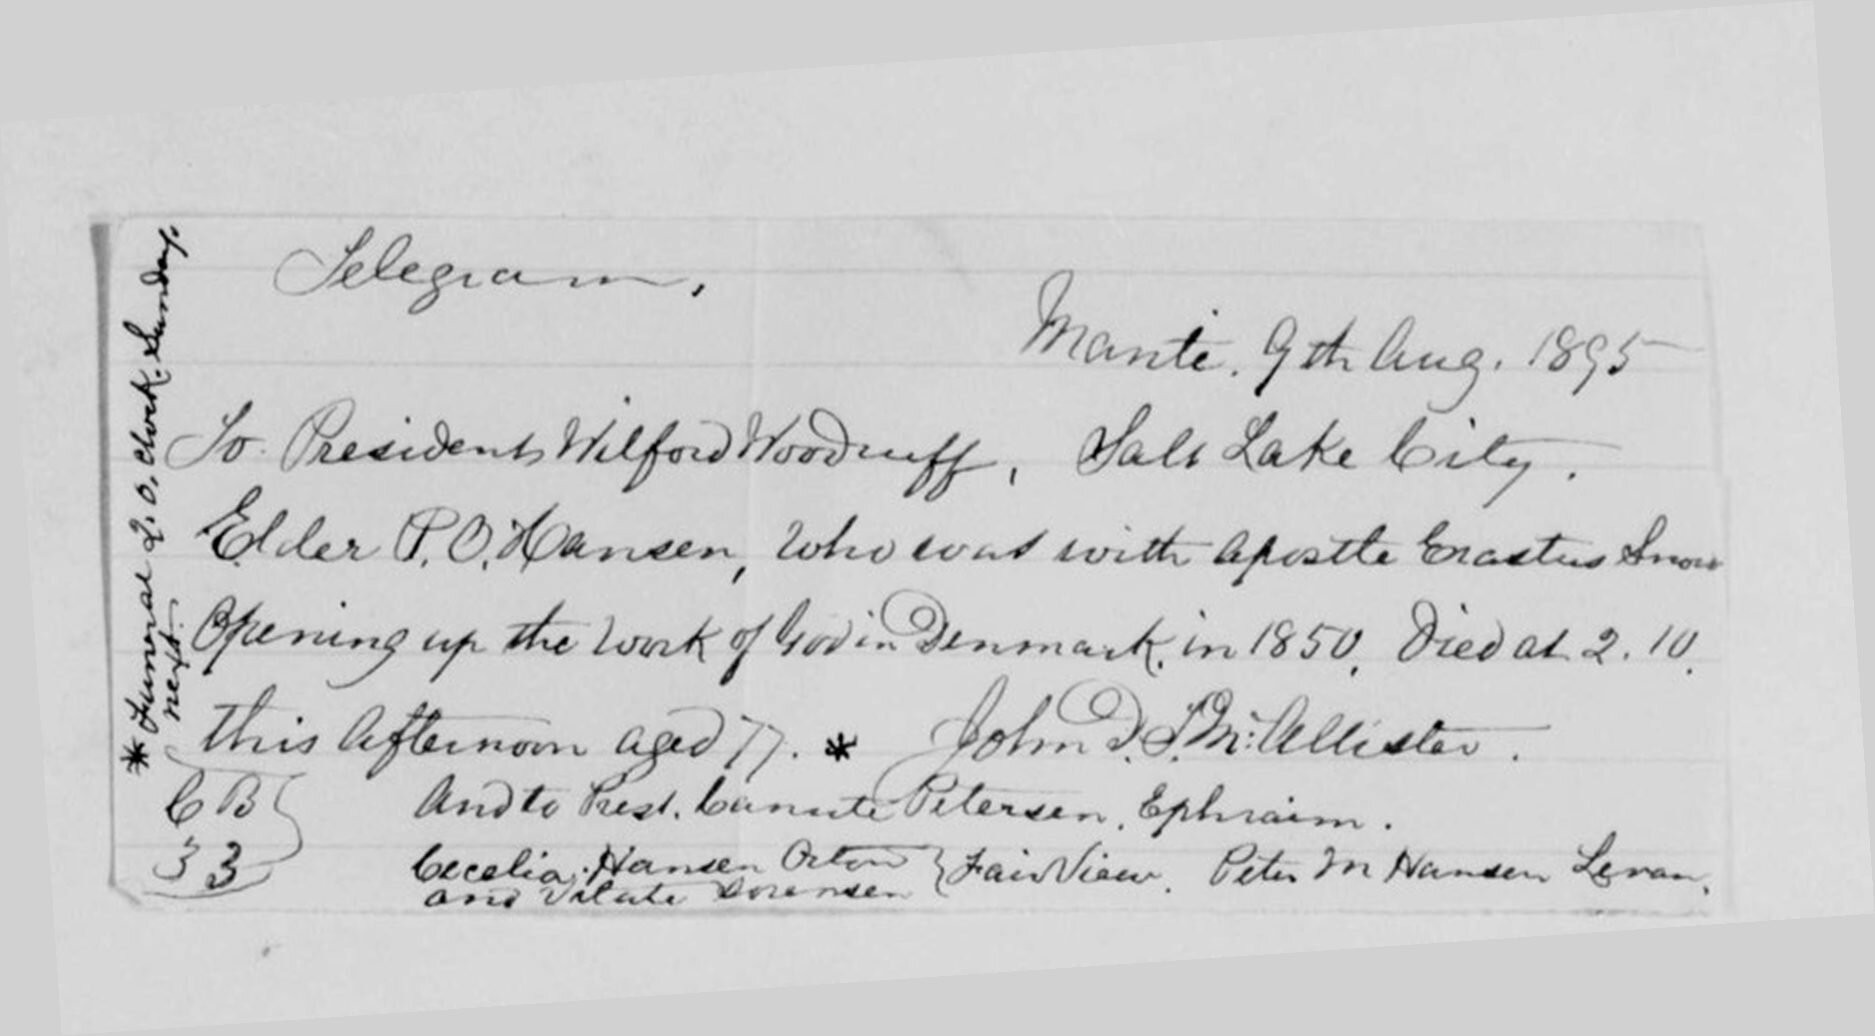 Telegram,
Manti. 9th Aug. 1895
To President Wilford Woodruff, Salt Lake City.
Elder P. O. Hansen, who was with Apostle Erastus Snow
Opening up the work of God in Denmark, in 1850, Died at 2.10.
this Afternoon aged 77. * John D. T. McAllister.
And to Prest. Canute Petersen, Ephraim.
Cecelia Hansen Orton } Fair View. Peter M Hansen Levan.
and Vilate Sorensen
C B }
33
* Funeral 2. O, clock. Sunday,
next.